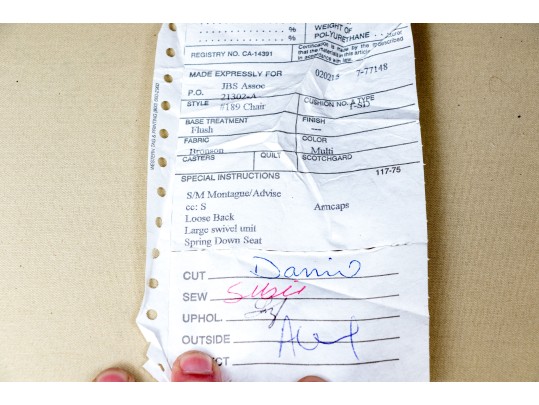 %
WEIGHT OF
% POLYURETHANE
%
Certification is made by the
that the materials in this article described
in accordance with law.
REGISTRY NO. CA-14391
MADE EXPRESSLY FOR 020218 7-77148
JBS Assoc
P.O. 21302-A
STYLE #189 Chair CUSHION NO. & TYPE 1-SD
BASE TREATMENT FINISH
Flush —
FABRIC COLOR
Bronson Multi
CASTERS QUILT SCOTCHGARD
117-75
SPECIAL INSTRUCTIONS
S/M Montagne/Advise
cc: S Armcaps
Loose Back
Large swivel unit
Spring Down Seat
CUT
SEW Susie
UPHOL.
OUTSIDE